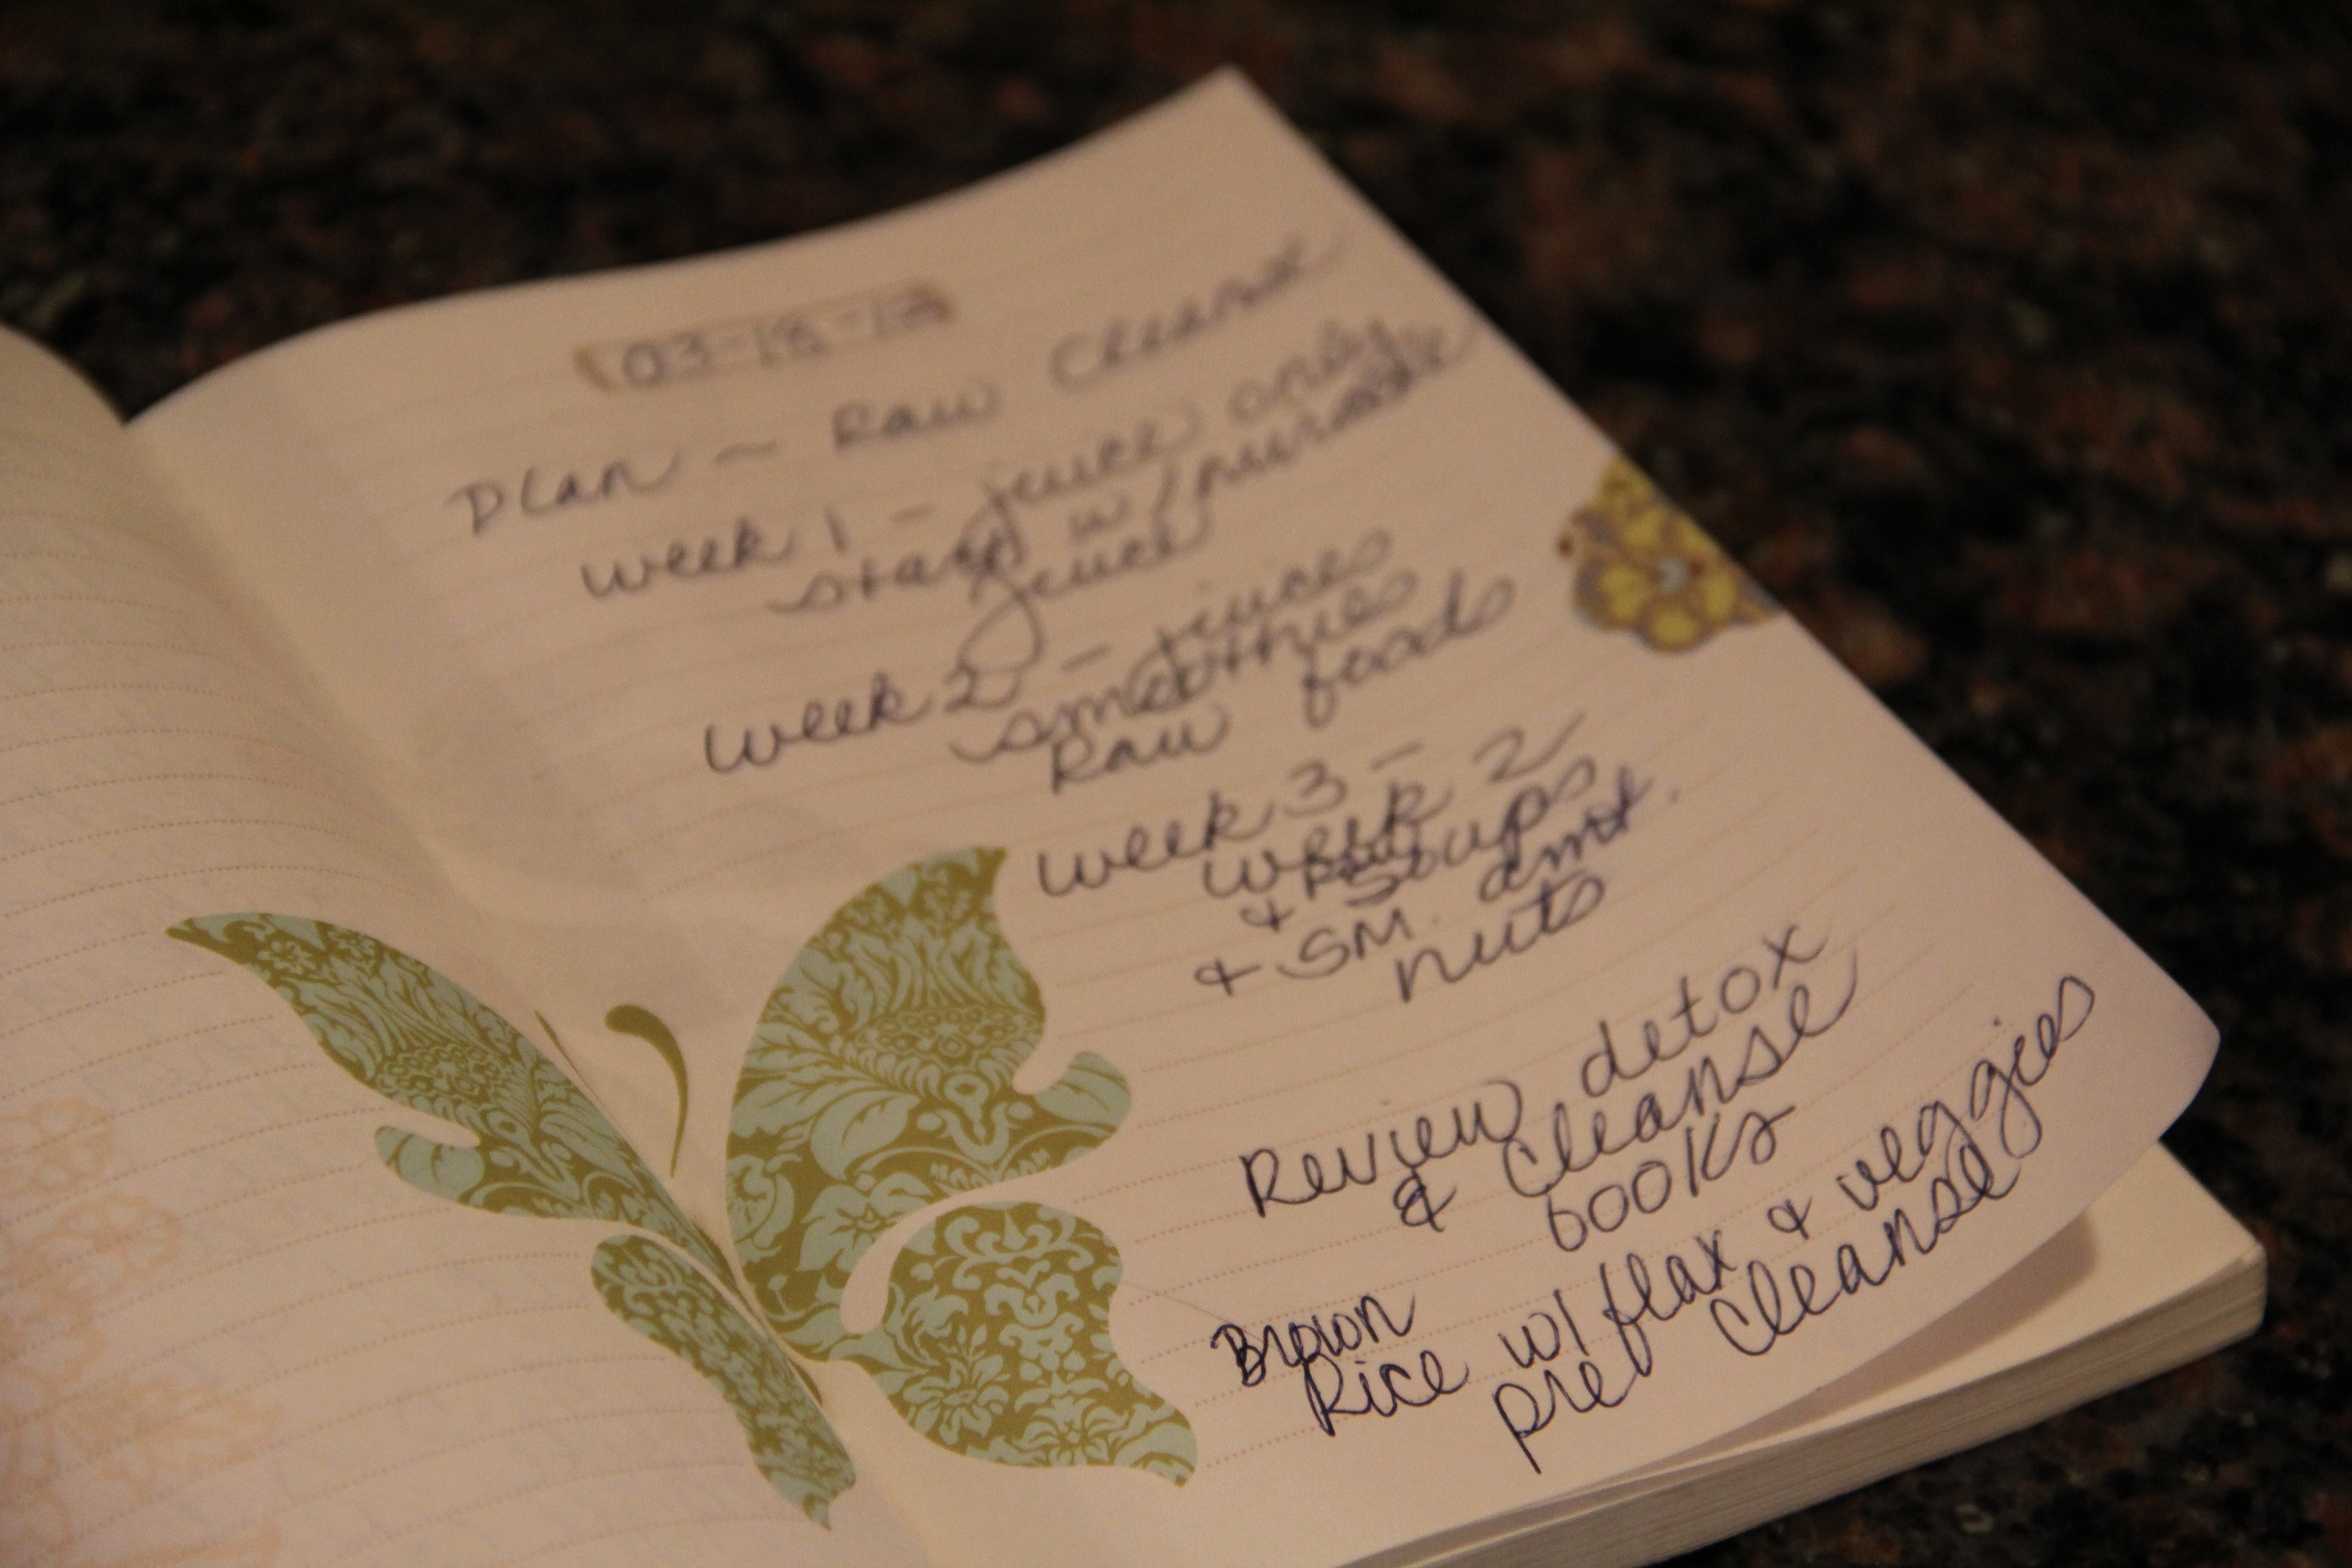 03-18-12
Plan ~ Raw Cleanse
week 1 - juice only
start w/
juice
week 2 - juices
smoothies
Raw foods
week 3 -
week 2
& Raw Soups
& SM. amt.
nuts
Review detox
& Cleanse
books
Brown
Rice w/ flax & veggies
pre cleanse